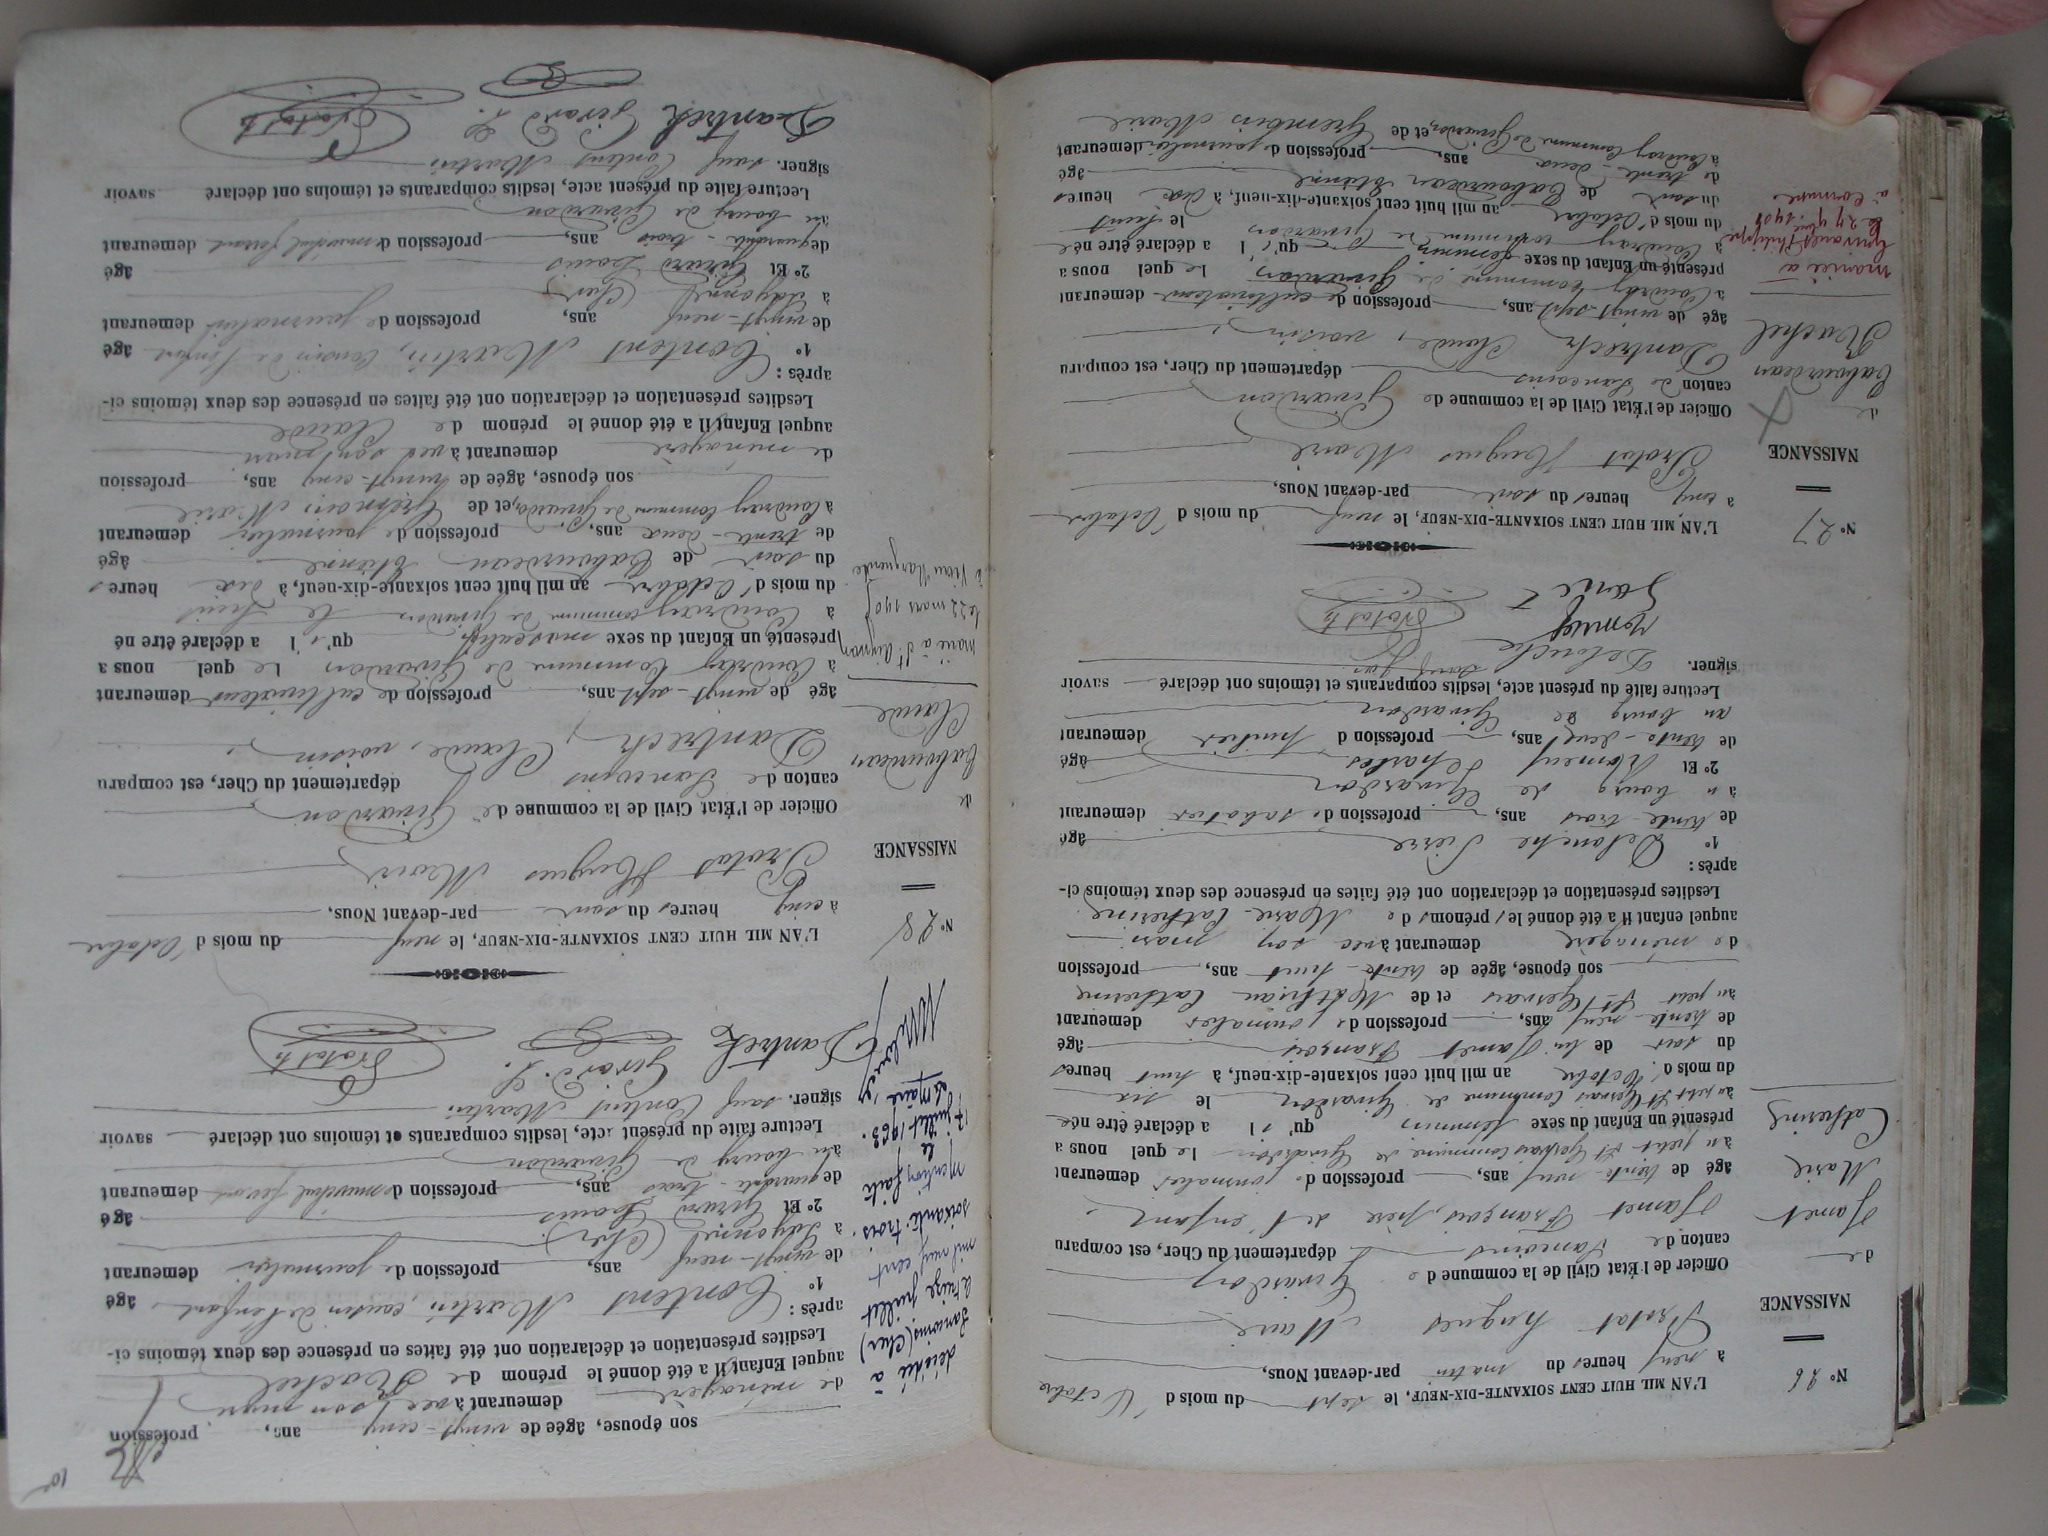 N° 26
NAISSANCE
de
Jamet
Marie
Catherine
L'AN MIL HUIT CENT SOIXANTE-DIX-NEUF, le sept du mois d'Octobre
à neuf heures du matin par-devant Nous,
Protat Hugues Maire
Officier de l'État Civil de la commune de Givardon
canton de Sancoins département du Cher, est comparu
Jamet François, père de l'enfant
âgé de trente-neuf ans, profession de journalier demeurant
au petit St Gervais commune de Givardon lequel nous a
présenté un Enfant du sexe féminin qu'il a déclaré être née
au petit St Gervais commune de Givardon le six
du mois d'Octobre an mil huit cent soixante-dix-neuf, à huit heures
du soir de lui Jamet François âgé
de trente-neuf ans, profession de journalier demeurant
au petit St Gervais et de Catherine
son épouse, âgée de trente-huit ans, profession
de ménagère demeurant avec son mari
auquel enfant il a été donné les prénoms de Marie-Catherine
Lesdites présentation et déclaration ont été faites en présence des deux témoins ci-
après :
1° Delouche Pierre âgé
de trente-trois ans, profession de sabotier demeurant
au bourg de Givardon
2° Et Momeuf Charles âgé
de trente-neuf ans, profession d'huilier demeurant
au bourg de Givardon
Lecture faite du présent acte, lesdits comparants et témoins ont déclaré savoir
signer.
Delouche
Momeuf Protat h
N° 27
NAISSANCE
de
Cabourdeau
Rachel
mariée à
Philippe
le 27 1901
L'AN MIL HUIT CENT SOIXANTE-DIX-NEUF, le neuf du mois d'Octobre
à cinq heures du soir par-devant Nous,
Protat Hugues Maire
Officier de l'État Civil de la commune de Givardon
canton de Sancoins département du Cher, est comparu
Dantrech Claude, voisin,
âgé de vingt-sept ans, profession de cultivateur demeurant
à Coudray commune de Givardon lequel nous a
présenté un Enfant du sexe féminin qu'il a déclaré être née
à Coudray commune de Givardon le huit
du mois d'Octobre an mil huit cent soixante-dix-neuf, à dix heures
du soir de Cabourdeau Etienne âgé
de trente-deux ans, profession de journalier demeurant
à Coudray commune de Givardon, et de Marie
son épouse, âgée de vingt-cinq ans, profession
de ménagère demeurant avec son mari
auquel Enfant il a été donné le prénom de Rachel
Lesdites présentation et déclaration ont été faites en présence des deux témoins ci-
après :
1° Content Martin, cousin de l'enfant âgé
de vingt-neuf ans, profession de journalier demeurant
à (Cher)
2° Et Girard Louis âgé
de quarante-trois ans, profession de maréchal ferrant demeurant
au bourg de Givardon
Lecture faite du présent acte, lesdits comparants et témoins ont déclaré savoir
signer. sauf Content Martin
Dantrech Girard L. Protat h
décédée à
Sancoins (Cher)
le treize juillet
mil neuf cent
soixante trois.
Mention faite
le
17 juillet 1963.
Le Maire,
N° 28
NAISSANCE
de
Cabourdeau
Claude
marié à St Aignan
le 22 mars 190
L'AN MIL HUIT CENT SOIXANTE-DIX-NEUF, le neuf du mois d'Octobre
à cinq heures du soir par-devant Nous,
Protat Hugues Maire
Officier de l'État Civil de la commune de Givardon
canton de Sancoins département du Cher, est comparu
Dantrech, Claude, voisin,
âgé de vingt-sept ans, profession de cultivateur demeurant
à Coudray commune de Givardon lequel nous a
présenté un Enfant du sexe masculin qu'il a déclaré être né
à Coudray commune de Givardon le huit
du mois d'Octobre an mil huit cent soixante-dix-neuf, à dix heures
du soir de Cabourdeau Etienne âgé
de trente-deux ans, profession de journalier demeurant
à Coudray commune de Givardon, et de Marie
son épouse, âgée de vingt-cinq ans, profession
de ménagère demeurant avec son mari
auquel Enfant il a été donné le prénom de Claude
Lesdites présentation et déclaration ont été faites en présence des deux témoins ci-
après :
1° Content Martin, cousin de l'enfant âgé
de vingt-neuf ans, profession de journalier demeurant
à Cher
2° Et Girard Louis âgé
de quarante-trois ans, profession de maréchal ferrant demeurant
au bourg de Givardon
Lecture faite du présent acte, lesdits comparants et témoins ont déclaré savoir
signer. sauf Content Martin
Dantrech Girard L. Protat h